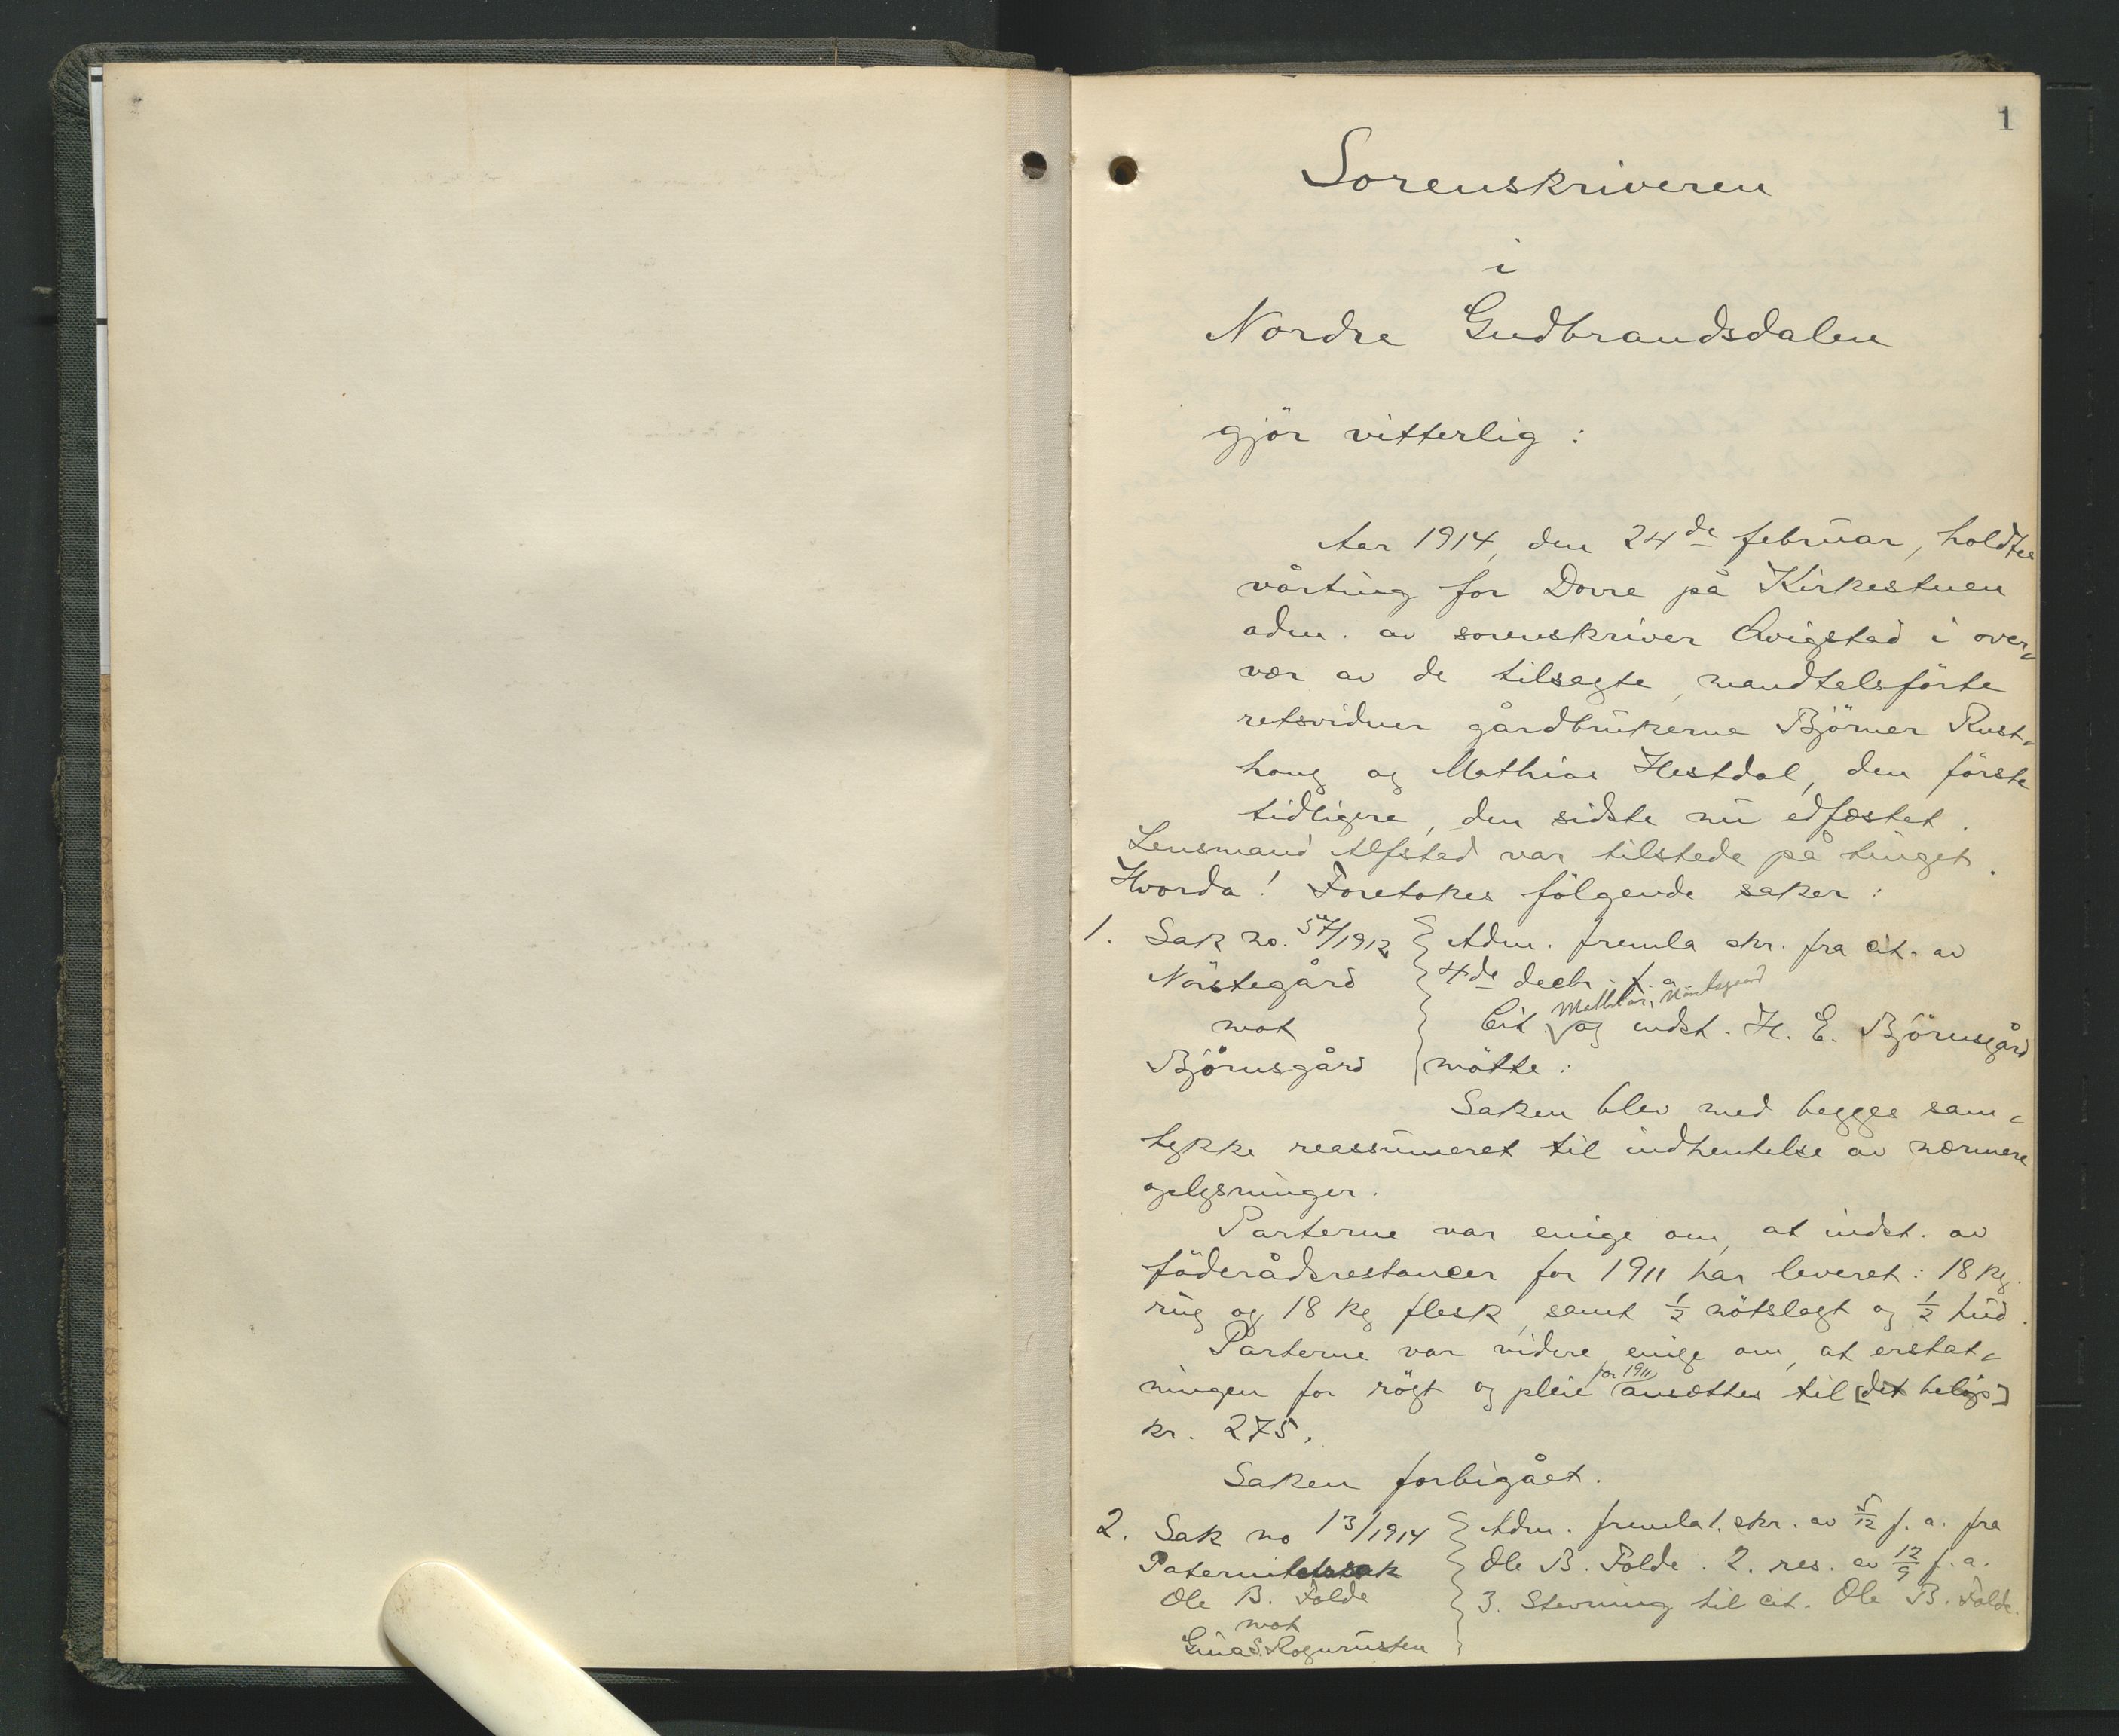 1
Sorenskriveren
i
Nordre Gudbrandsdalen
gjör vitterlig :
Aar 1914, den 24de februar, holdtes
vårting for Dovre på Kirkestuen
adm. av sorenskriver Qvigstad i over-
vær av de tilsagte, mandtalsförte
retsvidner gårdbrukerne Björner Rust-
haug og Mathias Hestdal, den förste
tidligere, den sidste nu edfæstet.
Lensmand Alfstad var tilstede på tinget.
Hvorda! Foretokes fölgende saker :
1. Sak no. 57/1912 Adm. fremla skr. fra cit. av
Nörstegård 4de decbr. f. a.
Mathias Nörstegaard
mot Cit. og indst. H. E. Björnsgård
Björnsgård mötte :
Saken blev med begges sam-
tykke reassumeret til indhentelse av nærmere
oplysninger.
Parterne var enige om, at indst. av
föderådsrestancer for 1911 har leveret : 18 kg.
rug og 18 kg flesk, samt ½ nötslagt og ½ hud.
Parterne var videre enige om, at erstat-
for 1911
ningen for rögt og pleie ansættes til [det beløp]
kr. 275.
Saken forbigået.
2. Sak no 13/1914 Adm. fremla 1. skr. av 5/12 f. a. fra
Paternitetssak Ole B. Folde. 2. res. av 12/9 f. a.
Ole B. Folde 3. Stevning til cit. Ole B. Folde.
mot
Gina S. Rogurusten